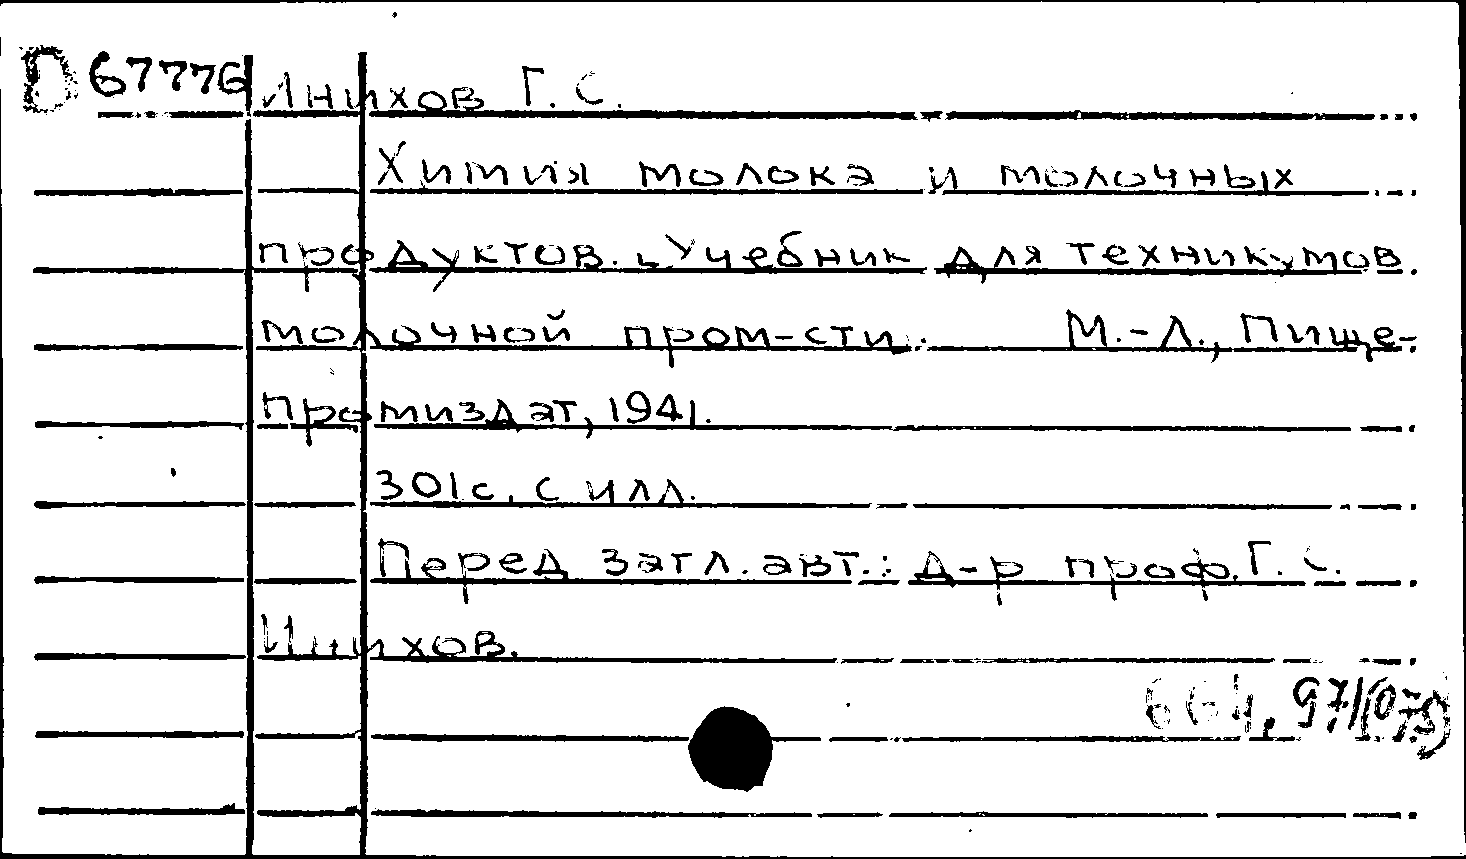 D 67776 Инихов Г. С.
Химия молока и молочных
продуктов. Учебник для техникумов
молочной пром-сти. М.-Л., Пище-
промиздат, 1941.
301 с. с илл.
Перед загл. авт.: Д-р проф. Г. С.
Инихов.
664.97/(075)